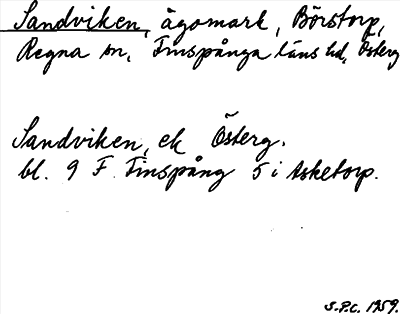 Sandviken, ägomark, Börstorp,
Regna sn, Finspånga läns hd, Österg
Sandviken, ek Österg.
bl. 9 F. Finspång 5 i Asketorp.
S.P.C. 1959.